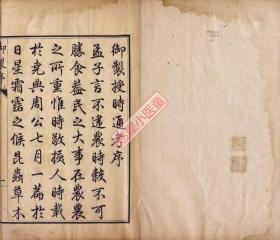 御製授時通考序
孟子言不違農時穀不可
勝食益民之大事在農農
之所重惟時敬授人時載
於堯典周公七月一篇於
日星霜露之候昆蟲草木
御製序